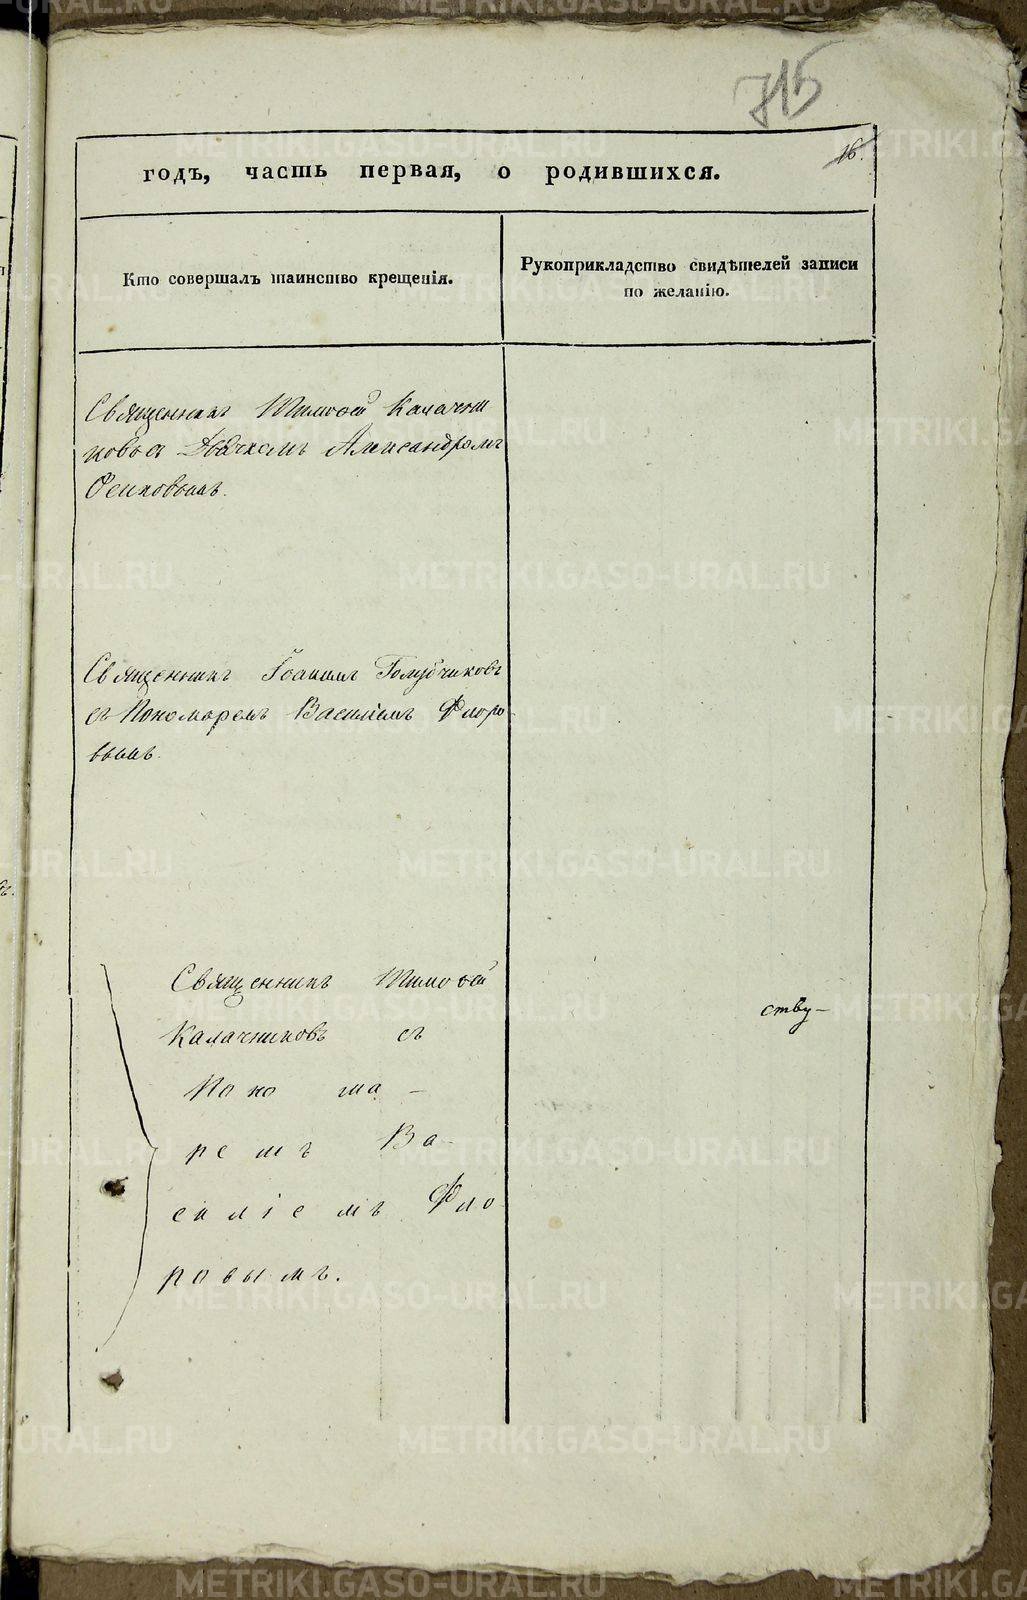 715
16.
годъ, часть первая, о родившихся.
Кто совершалъ таинство крещенія.
Рукоприкладство свидѣтелей записи
по желанію.
Священникъ Тимофей Калачни
ковъ съ Дьячкомъ Александромъ
Осиповымъ.
Священникъ Іоаннъ Голубчиковъ
съ Пономаремъ Василіемъ Флоро
вымъ.
Священникъ Тимофей
Калачниковъ съ
Поно ма-
ремъ Ва-
силіемъ Фло
ровымъ.
ству-
METRIKI.GASO-URAL.RU